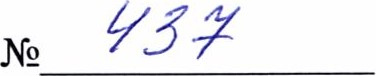 № 437